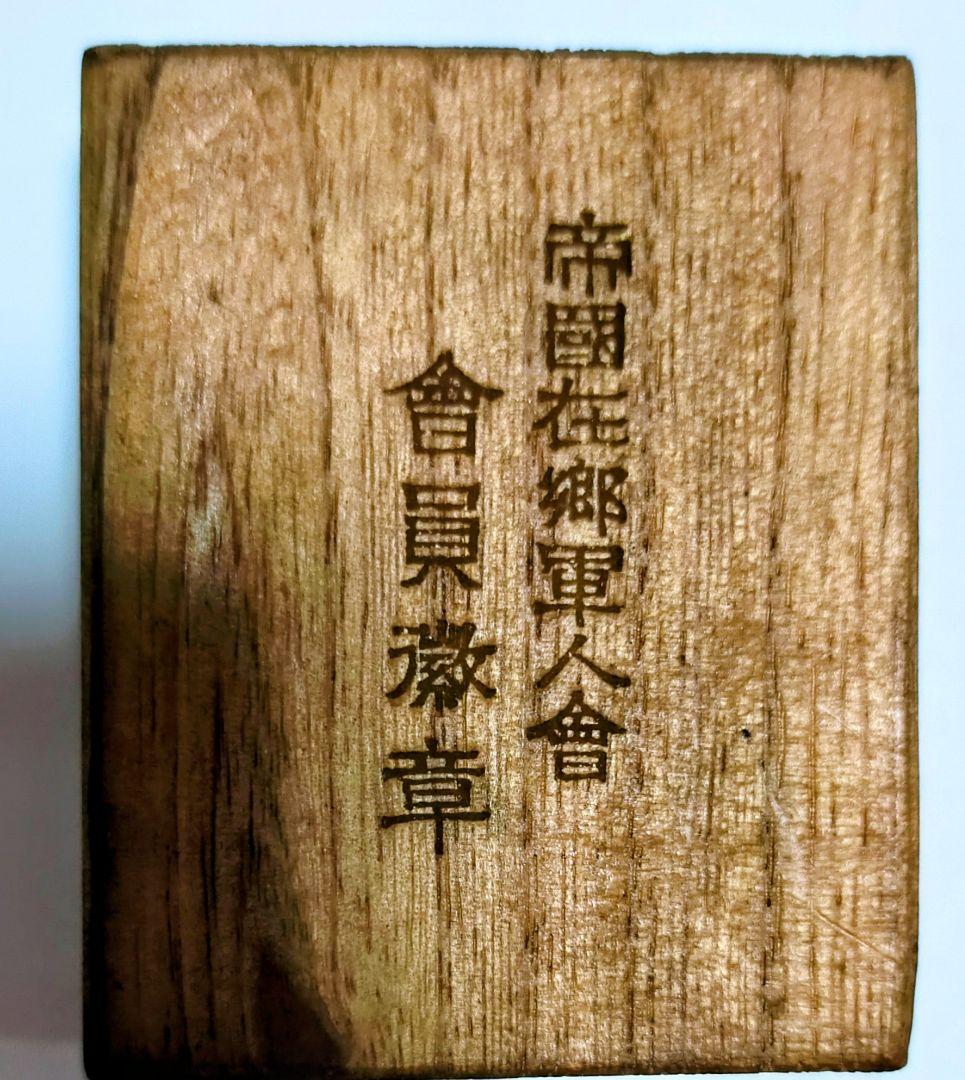 帝國在鄉軍人會
會員徽章